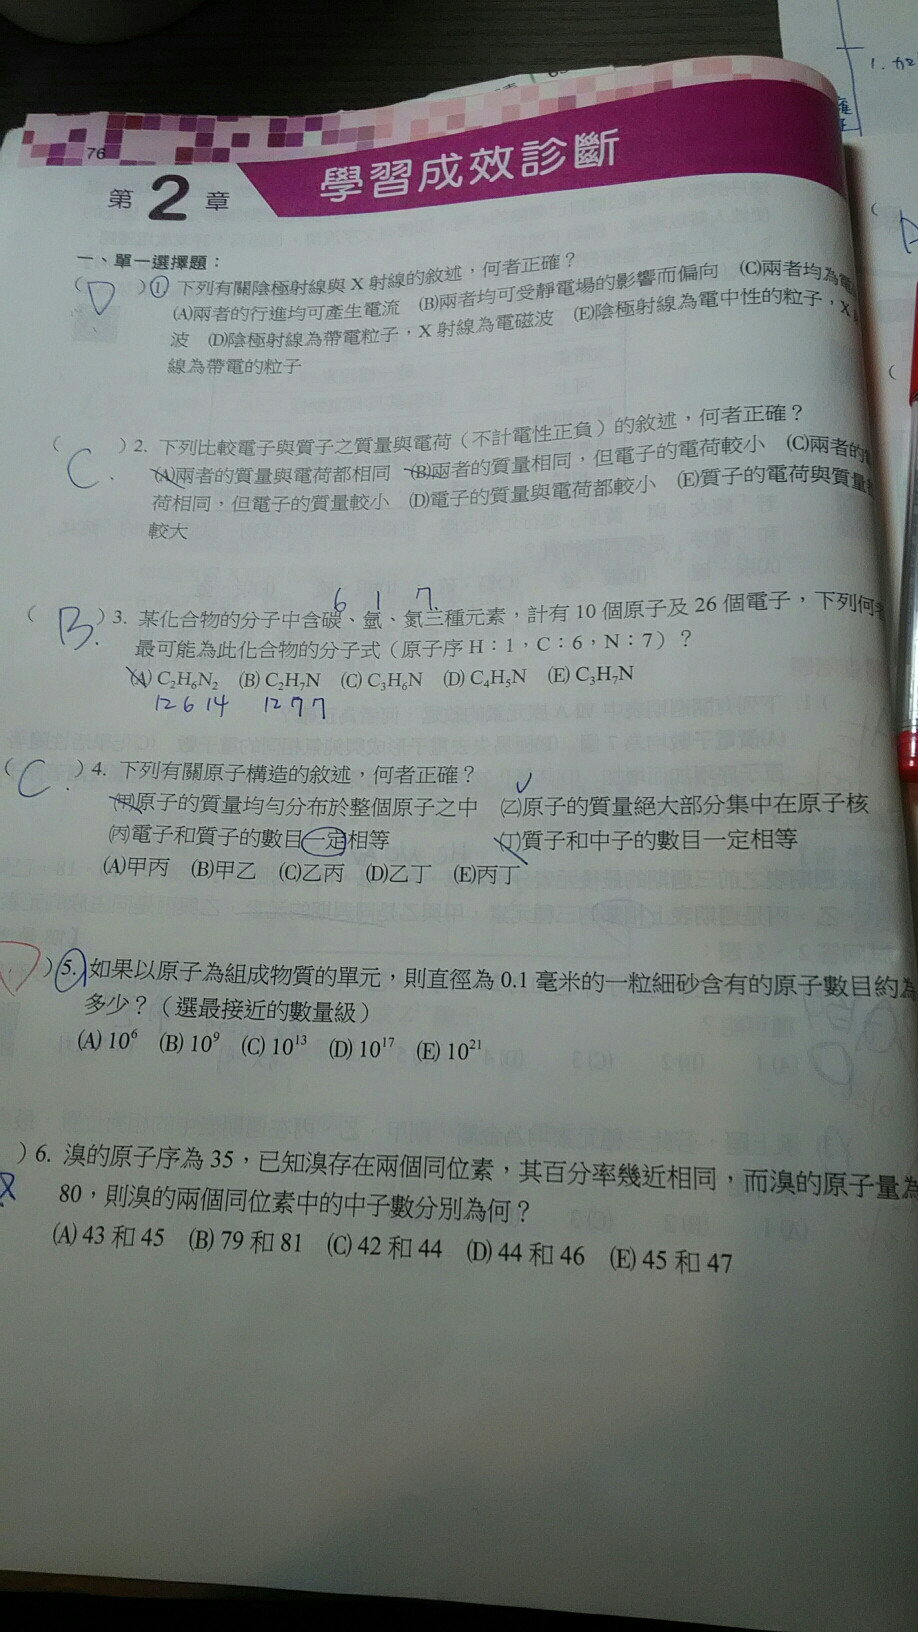 76
第2章 學習成效診斷
1. 加
一、單一選擇題：
( D )① 下列有關陰極射線與 X 射線的敘述，何者正確？
(A)兩者的行進均可產生電流 (B)兩者均可受靜電場的影響而偏向 (C)兩者均為電
波 (D)陰極射線為帶電粒子，X 射線為電磁波 (E)陰極射線為電中性的粒子，X
線為帶電的粒子
( C )2. 下列比較電子與質子之質量與電荷（不計電性正負）的敘述，何者正確？
(A)兩者的質量與電荷都相同 (B)兩者的質量相同，但電子的電荷較小 (C)兩者的
荷相同，但電子的質量較小 (D)電子的質量與電荷都較小 (E)質子的電荷與質量
較大
6 1 7
( B )3. 某化合物的分子中含碳、氫、氮三種元素，計有 10 個原子及 26 個電子，下列何
最可能為此化合物的分子式（原子序 H：1，C：6，N：7）？
(A) C₂H₆N₂ (B) C₂H₇N (C) C₃H₆N (D) C₄H₅N (E) C₃H₇N
12 6 14 12 7 7
( C )4. 下列有關原子構造的敘述，何者正確？
(甲)原子的質量均勻分布於整個原子之中 (乙)原子的質量絕大部分集中在原子核
(丙)電子和質子的數目一定相等 (丁)質子和中子的數目一定相等
(A)甲丙 (B)甲乙 (C)乙丙 (D)乙丁 (E)丙丁
)5. 如果以原子為組成物質的單元，則直徑為 0.1 毫米的一粒細砂含有的原子數目約為
多少？（選最接近的數量級）
(A) 10⁶ (B) 10⁹ (C) 10¹³ (D) 10¹⁷ (E) 10²¹
)6. 溴的原子序為 35，已知溴存在兩個同位素，其百分率幾近相同，而溴的原子量為
80，則溴的兩個同位素中的中子數分別為何？
(A) 43 和 45 (B) 79 和 81 (C) 42 和 44 (D) 44 和 46 (E) 45 和 47